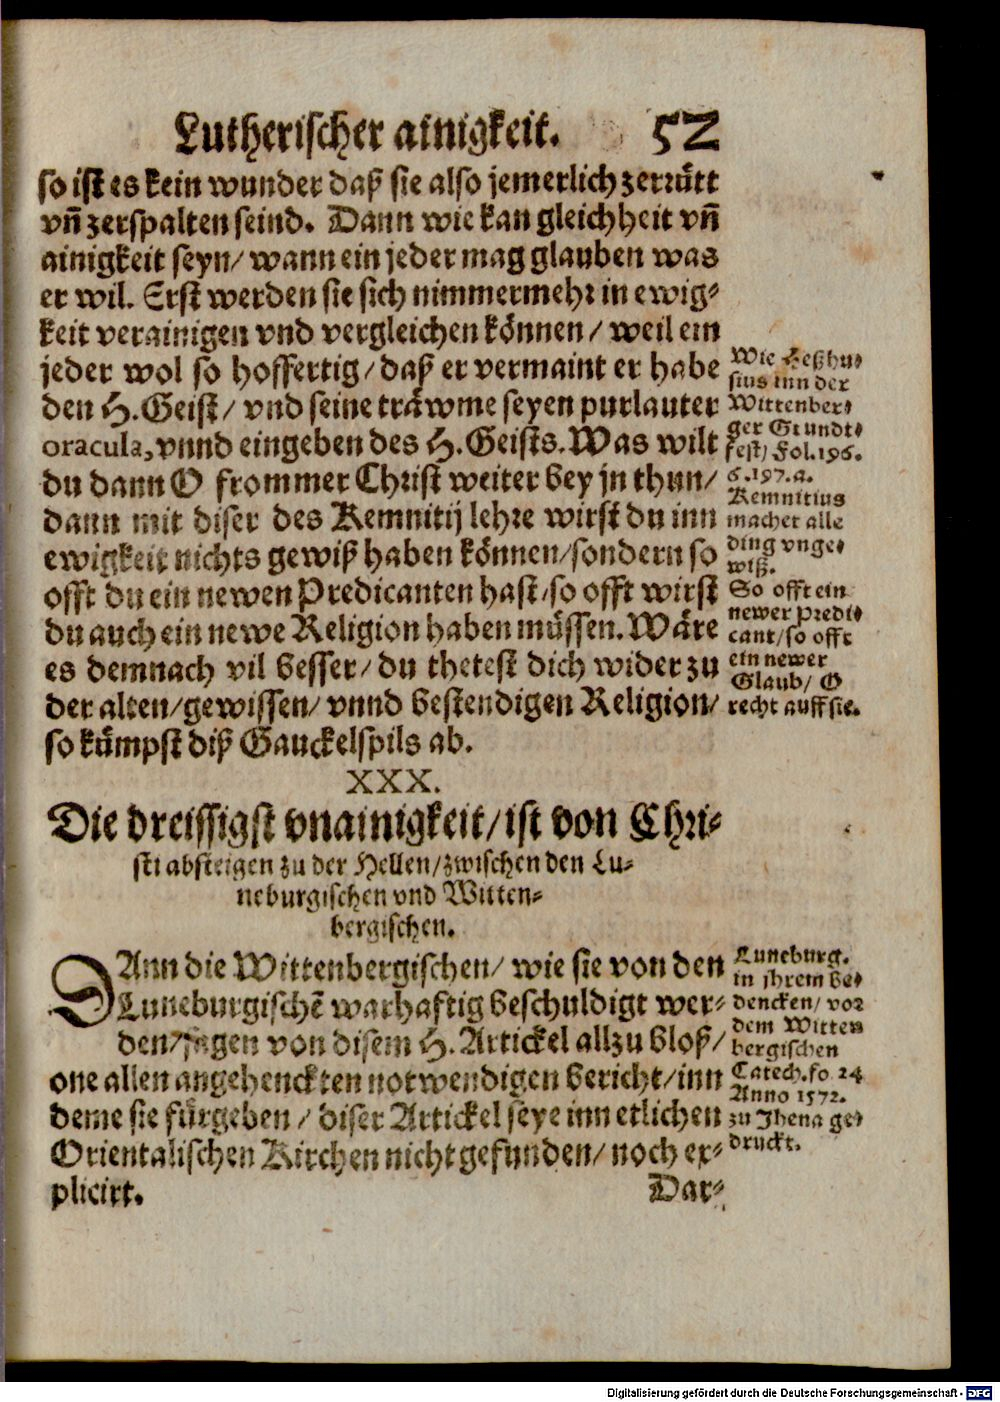 Lutherischer ainigkeit. 52
so ist es kein wunder daß sie also jemerlich zerrütt
vñ zerspalten seind. Dann wie kan gleichheit vñ
ainigkeit seyn/ wann ein jeder mag glauben was
er wil. Erst werden sie sich nimmermehr in ewig⸗
keit verainigen vnd vergleichen können/ weil ein
jeder wol so hoffertig/ daß er vermaint er habe
den H. Geist/ vnd seine träwme seyen purlauter
oracula, vnnd eingeben des H. Geists. Was wilt
du dann O frommer Christ weiter bey jn thun/
dann mit diser des Kemnitij lehre wirst du inn
ewigkeit nichts gewiß haben können/ sondern so
offt du ein newen Predicanten hast/ so offt wirst
du auch ein newe Religion haben müssen. Wäre
es demnach vil besser/ du thetest dich wider zu
der alten/ gewissen/ vnnd bestendigen Religion/
so kämpst diß Gauckelspils ab.
Wie Heßhu⸗
sius inn der
Wittenber⸗
ger Grundt⸗
fest/ Fol. 196.
b. 197. a.
Kemnitius
machet alle
ding vnge⸗
wiß.
So offt ein
newer Predi⸗
cant/ so offt
ein newer
Glaub/ O
recht auff sie.
XXX.
Die dreissigst vnainigkeit/ ist von Chri⸗
sti absteigen zu der Hellen/ zwischen den Lu⸗
neburgischen vnd Witten⸗
bergischen.
DAnn die Wittenbergischen/ wie sie von den
Luneburgischẽ warhaftig beschuldigt wer⸗
den/ sagen von disem H. Artickel allzu bloß/
one allen angehenckten notwendigen bericht/ inn
deme sie fürgeben/ diser Artickel seye inn etlichen
Orientalischen Kirchen nicht gefunden/ noch ex⸗
plicirt.
Luneburg.
in ihrem be⸗
dencken/ vor
dem Witten
bergischen
Catech. fo 24
Anno 1572.
zu Jhena ge⸗
druckt.
Dar⸗
Digitalisierung gefördert durch die Deutsche Forschungsgemeinschaft - DFG